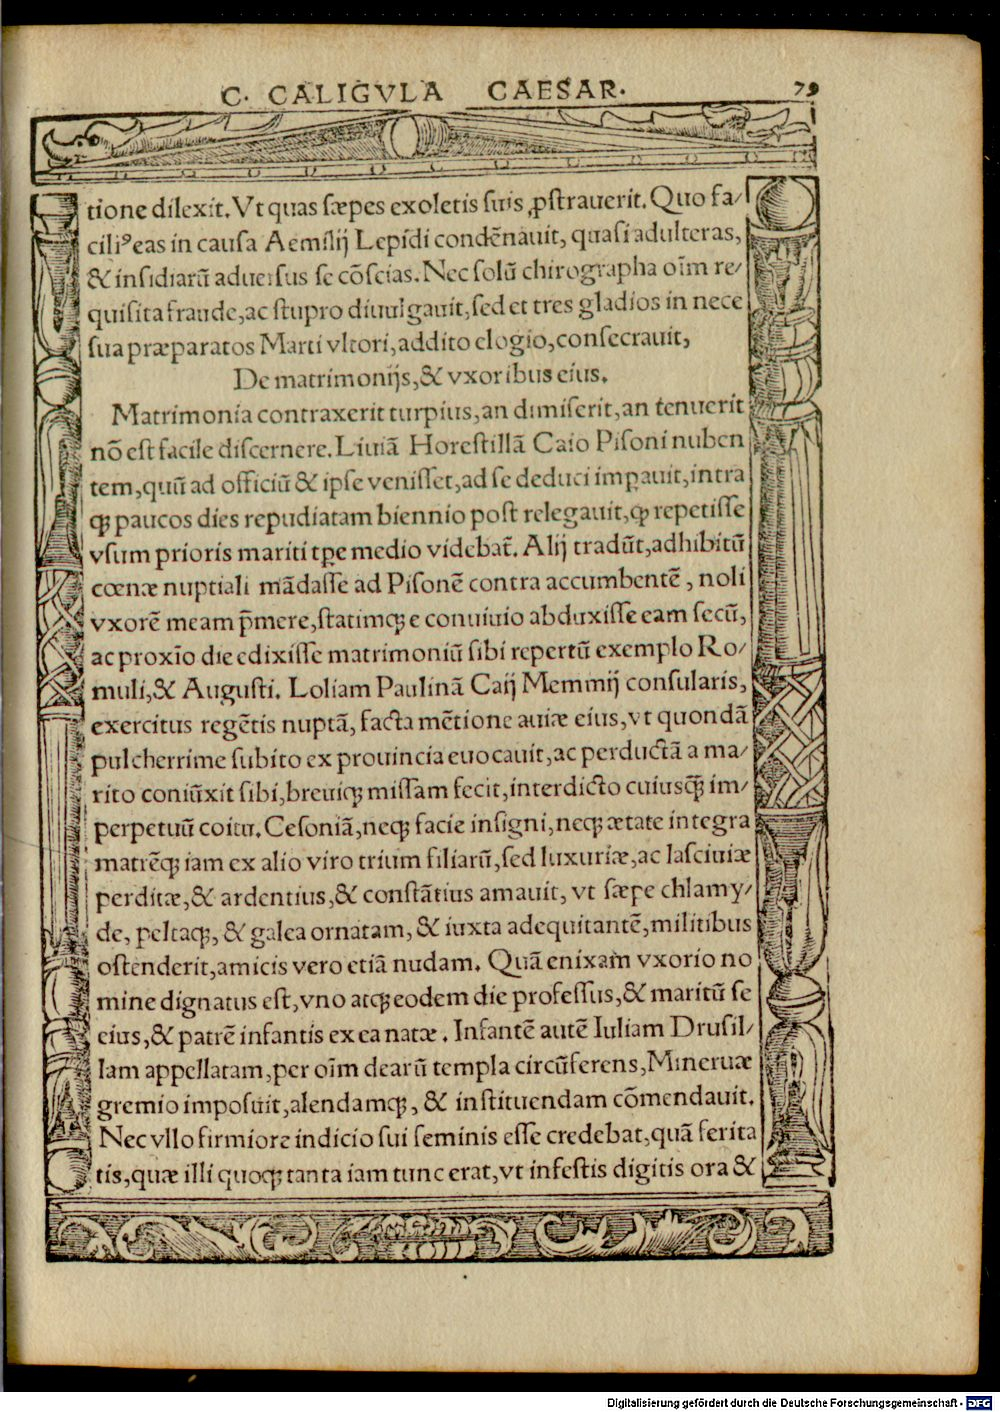 C. CALIGVLA CAESAR.
79
tione dilexit. Vt quas sæpes exoletis suis ꝓstrauerit. Quo fa/
ciliꝰ eas in causa Aemilij Lepidi condēnauit, quasi adulteras,
& insidiarū aduersus se cōscias. Nec solū chirographa oīm re/
quisita fraude, ac stupro diuulgauit, sed et tres gladios in nece
sua præparatos Marti vltori, addito elogio, consecrauit,
De matrimonijs, & vxoribus eius.
Matrimonia contraxerit turpius, an dimiserit, an tenuerit
nō est facile discernere. Liuiā Horestillā Caio Pisoni nuben
tem, quū ad officiū & ipse venisset, ad se deduci imꝑauit, intra
qꝫ paucos dies repudiatam biennio post relegauit, ꝙ repetisse
vsum prioris mariti tꝑe medio videbat̄. Alij tradūt, adhibitū
cœnæ nuptiali mādasse ad Pisonē contra accumbentē, noli
vxorē meam p̄mere, statimqꝫ e conuiuio abduxisse eam secū,
ac proxīo die edixisse matrimoniū sibi repertū exemplo Ro/
muli, & Augusti. Loliam Paulinā Caij Memmij consularis,
exercitus regētis nuptā, facta mētione auiæ eius, vt quondā
pulcherrime subito ex prouincia euocauit, ac perductā a ma/
rito coniūxit sibi, breuiqꝫ missam fecit, interdicto cuiusqꝫ̄ im/
perpetuū coitu. Cesoniā, neqꝫ facie insigni, neqꝫ ætate integra
matrēqꝫ iam ex alio viro trium filiarū, sed luxuriæ, ac lasciuiæ
perditæ, & ardentius, & constātius amauit, vt sæpe chlamy/
de, peltaqꝫ, & galea ornatam, & iuxta adequitantē, militibus
ostenderit, amicis vero etiā nudam. Quā enixam vxorio no
mine dignatus est, vno atqꝫ eodem die professus, & maritū se
eius, & patrē infantis ex ea natæ. Infantē autē Iuliam Drusil/
lam appellatam, per oīm dearū templa circūferens, Mineruæ
gremio imposuit, alendamqꝫ, & instituendam cōmendauit.
Nec vllo firmiore indicio sui seminis esse credebat, quā ferita
tis, quæ illi quoqꝫ tanta iam tunc erat, vt infestis digitis ora &
Digitalisierung gefördert durch die Deutsche Forschungsgemeinschaft - DFG